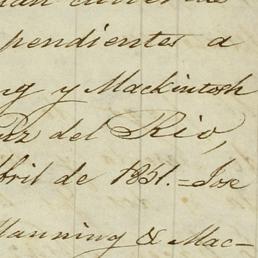 pendientes a
y Mackintosh
del Rio,
Abril de 1831.=Jose
Manning & Mac-